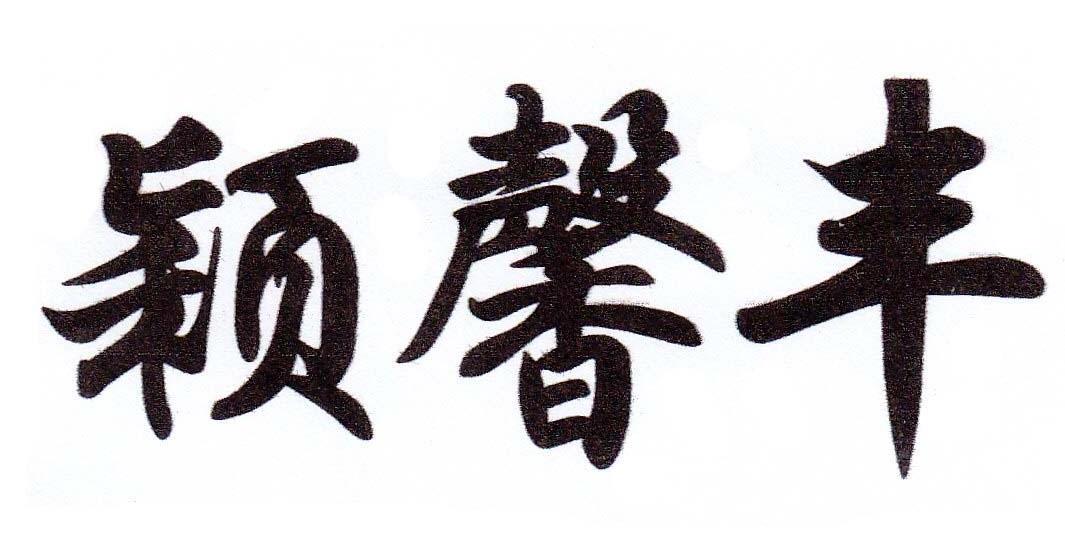 颖馨丰